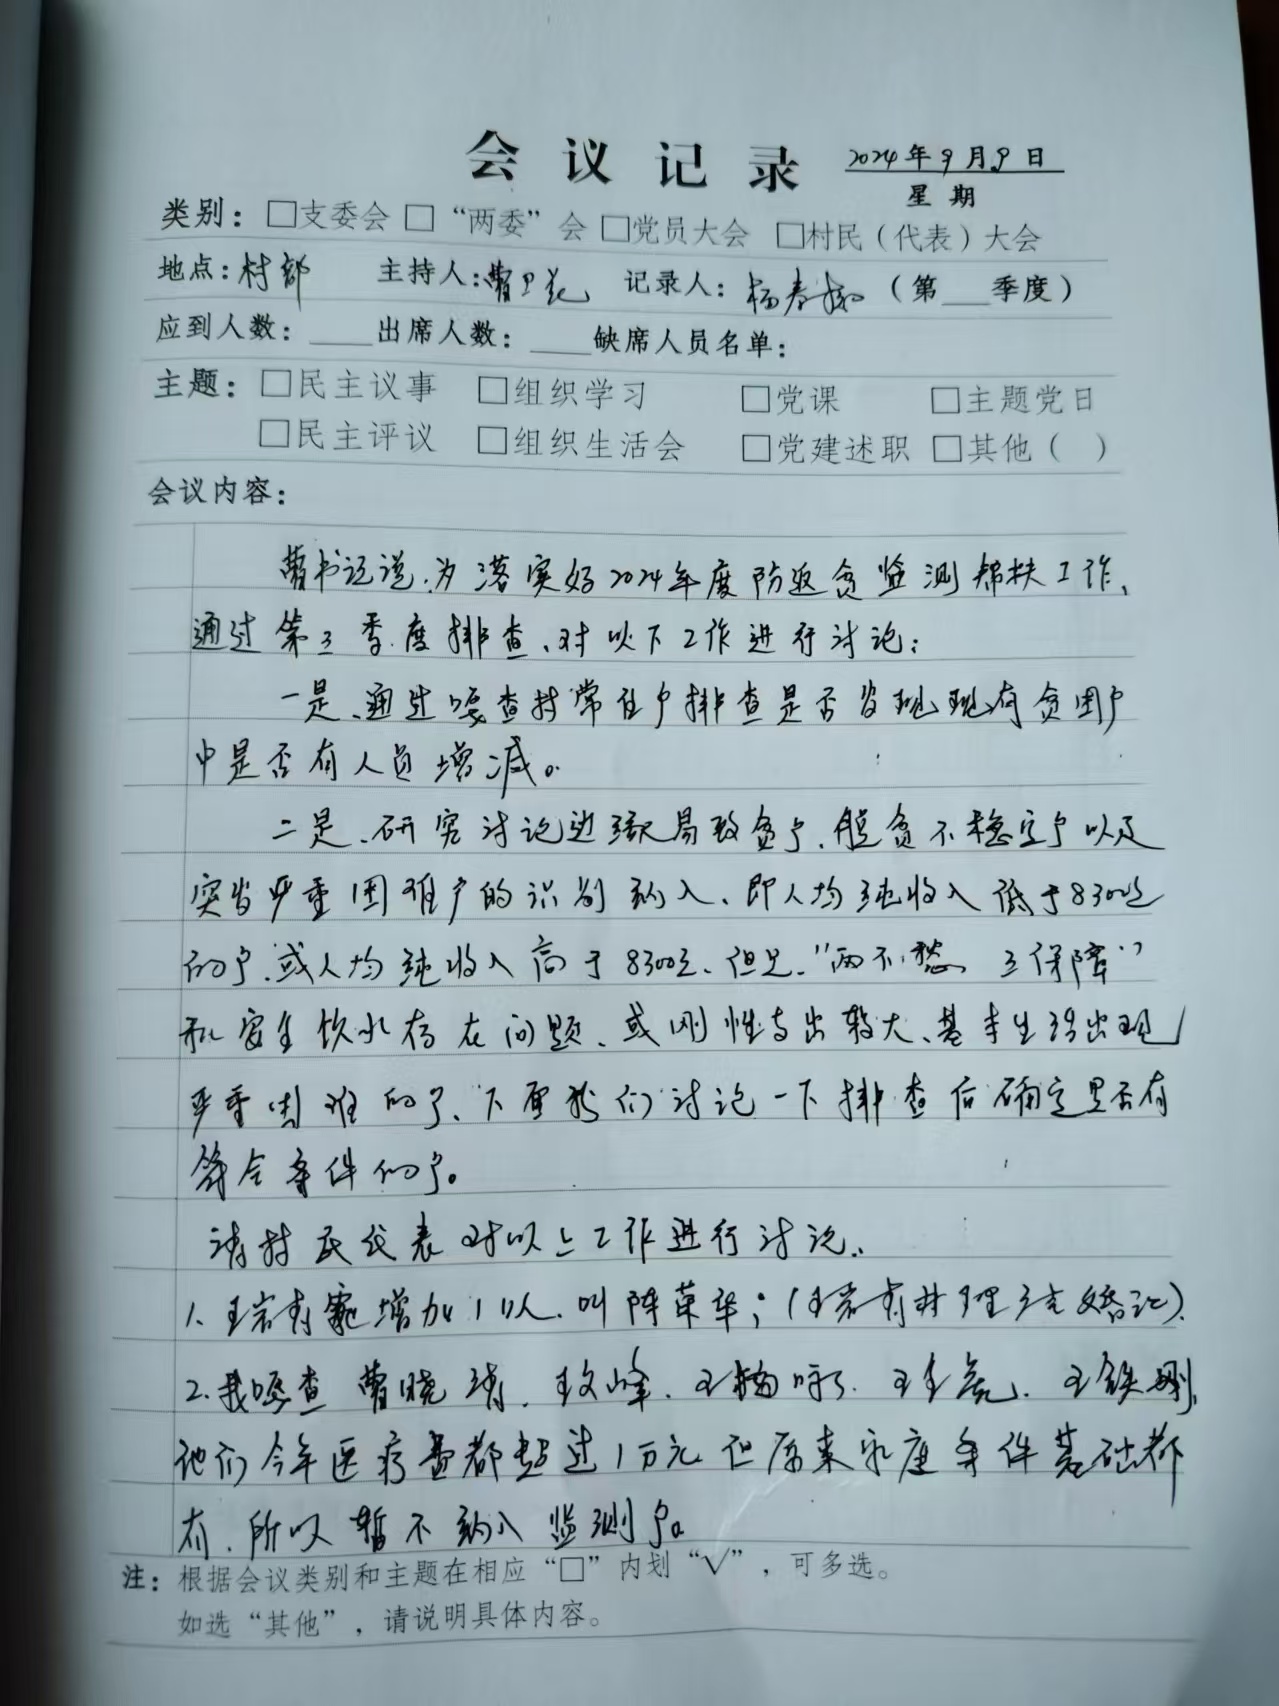 会议记录 2024年9月9日
星期
类别：□支委会 □“两委”会 □党员大会 □村民（代表）大会
地点：村部 主持人：曹 记录人：杨春 （第___季度）
应到人数：____出席人数：____缺席人员名单：
主题：□民主议事 □组织学习 □党课 □主题党日
□民主评议 □组织生活会 □党建述职 □其他（ ）
会议内容：
曹书记说，为落实好2024年度防返贫监测帮扶工作，
通过第三季度排查、对以下工作进行讨论：
一是、通过嘎查村常住户排查是否发现现有贫困户
中是否有人员增减。
二是、研究讨论边缘易致贫户、脱贫不稳定户以及
突发严重困难户的识别纳入、即人均纯收入低于8300元
的户、或人均纯收入高于8300元、但是、“两不愁 三保障”
和安全饮水存在问题、或刚性支出较大、基本生活出现
严重困难的户、下面我们讨论一下排查后确定是否有
符合条件的户。
请村民代表对以上工作进行讨论、
1、王 增加1人、叫陈荣华；（王 办理了结婚证）。
2、我嘎查曹晓 、王文峰、王 、王 、王铁刚，
他们今年医疗费都超过1万元但原来家庭条件基础都
有、所以暂不纳入监测户。
注：根据会议类别和主题在相应“□”内划“√”，可多选。
如选“其他”，请说明具体内容。